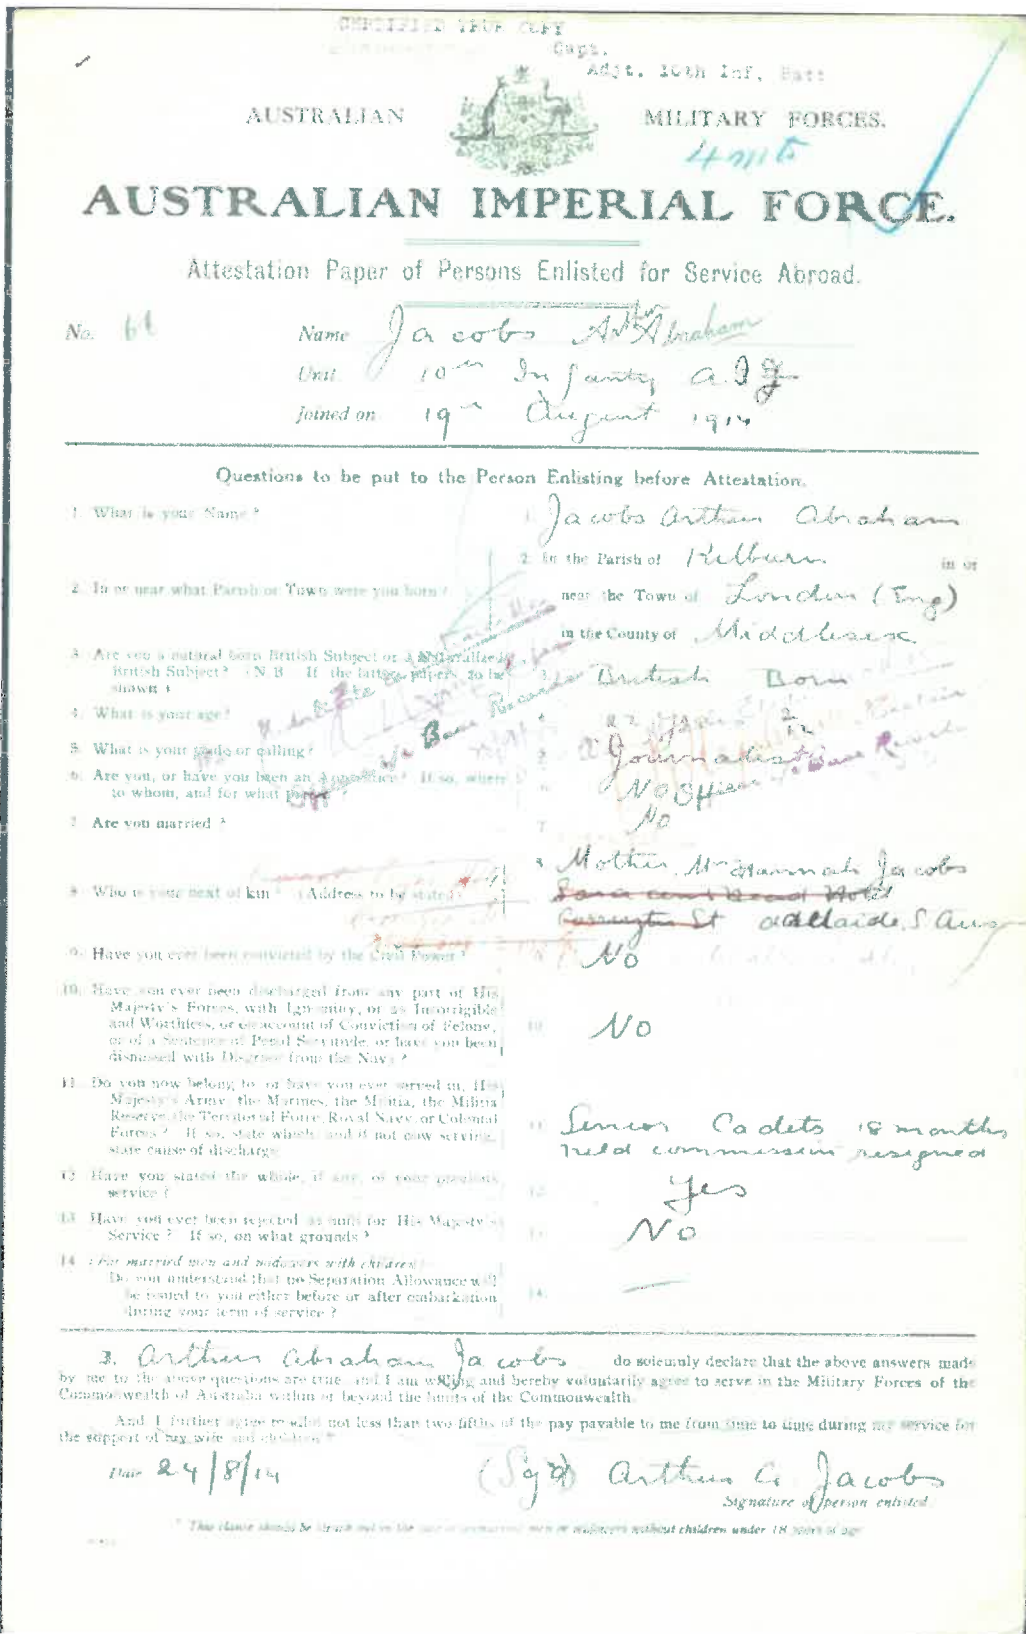 CERTIFIED TRUE COPY
Capt.
Adjt. 10th Inf. Batt
AUSTRALIAN MILITARY FORCES.
AUSTRALIAN IMPERIAL FORCE.
Attestation Paper of Persons Enlisted for Service Abroad.
No. 66 Name Jacobs Arthur Abraham
Unit 10th Infantry A.I.F
Joined on 19th August 1914
Questions to be put to the Person Enlisting before Attestation.
1. What is your Name? 1. Jacobs Arthur Abraham
2. In or near what Parish or Town were you born? 2. In the Parish of Kilburn in or
near the Town of London (Eng)
in the County of Middlesex
3. Are you a natural born British Subject or a Naturalized 3. British Born
British Subject? (N.B. If the latter, papers to be
shown)
4. What is your age? 4.
5. What is your trade or calling? 5. Journalist
6. Are you, or have you been an Apprentice? If so, where 6. No
to whom, and for what period?
7. Are you married? 7. No
8. Who is your next of kin? (Address to be stated) 8. Mother Mrs Hannah Jacobs
Carrington St Adelaide S Aus
9. Have you ever been convicted by the Civil Power? 9. No
10. Have you ever been discharged from any part of His 10. No
Majesty's Forces, with Ignominy, or as Incorrigible
and Worthless, or on account of Conviction of Felony,
or of a Sentence of Penal Servitude, or have you been
dismissed with Disgrace from the Navy?
11. Do you now belong to, or have you ever served in, His
Majesty's Army, the Marines, the Militia, the Militia
Reserve, the Territorial Force, Royal Navy, or Colonial 11. Senior Cadets 18 months
Forces? If so, state which, and if not now serving, held commission resigned
state cause of discharge
12. Have you stated the whole, if any, of your previous 12. Yes
service?
13. Have you ever been rejected as unfit for His Majesty's 13. No
Service? If so, on what grounds?
14. (For married men and widowers with children)
Do you understand that no Separation Allowance will
be issued to you either before or after embarkation 14. —
during your term of service?
3. Arthur Abraham Jacobs do solemnly declare that the above answers made
by me to the above questions are true, and I am willing and hereby voluntarily agree to serve in the Military Forces of the
Commonwealth of Australia within or beyond the limits of the Commonwealth.
And I further agree to allot not less than two fifths of the pay payable to me from time to time during my service for
the support of my wife and children.*
Date 24/8/14 (Sgd) Arthur A. Jacobs
Signature of person enlisted.
* This clause should be struck out in the case of unmarried men or widowers without children under 18 years of age